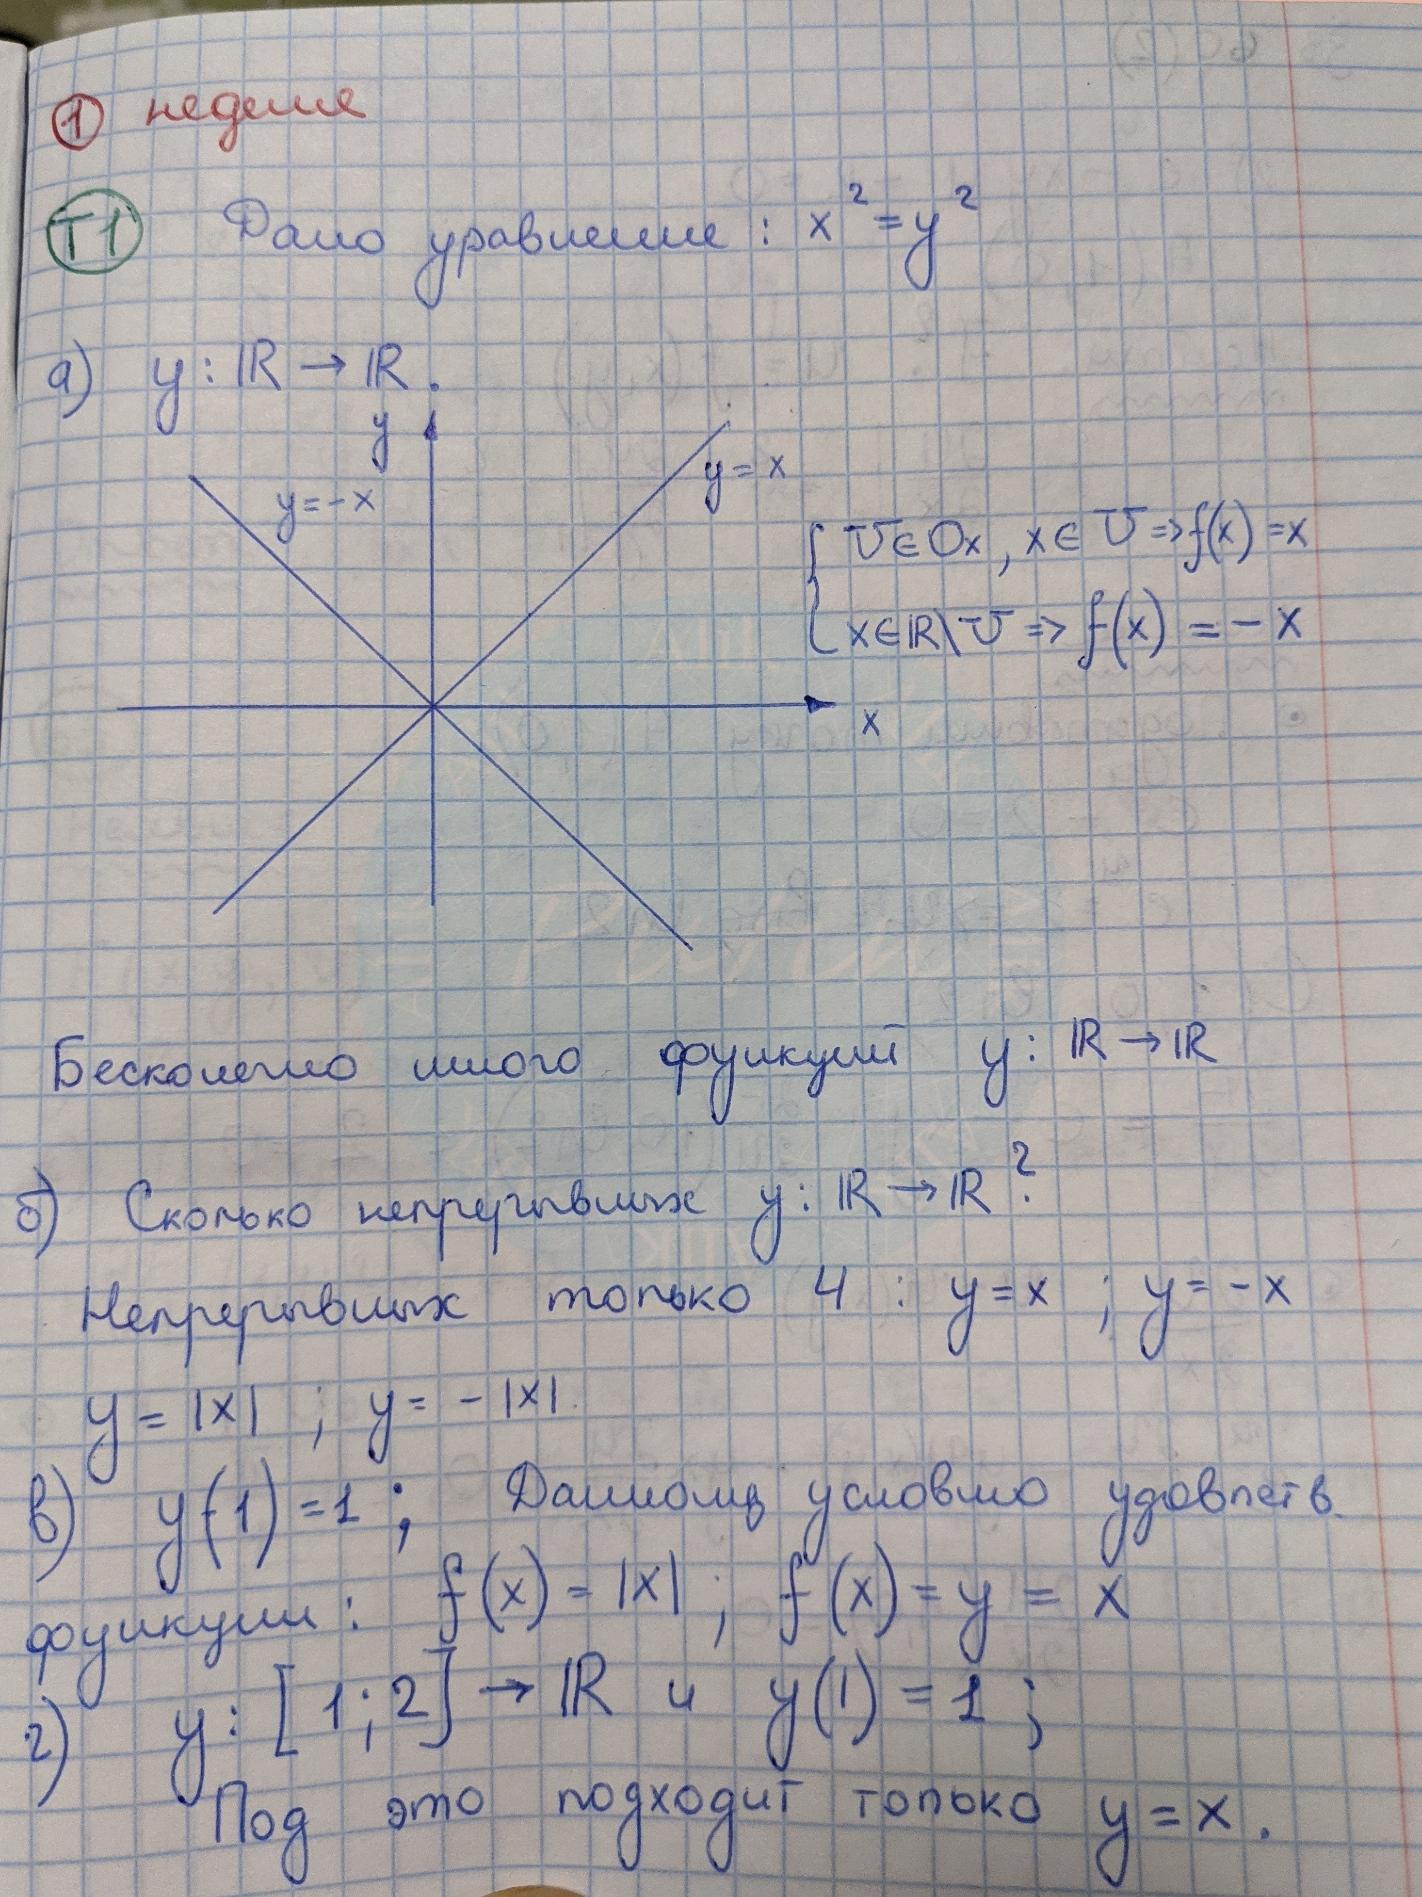 1 неделя
T1 Дано уравнение: x² = y²
а) y: ℝ → ℝ.
y
y = -x
y = x
x
{ U ∈ Ox, x ∈ U ⇒ f(x) = x
x ∈ ℝ\U ⇒ f(x) = -x
Бесконечно много функций y: ℝ → ℝ
б) Сколько непрерывных y: ℝ → ℝ?
Непрерывных только 4: y = x; y = -x
y = |x|; y = -|x|.
в) y(1) = 1; Данному условию удовлетв.
функции: f(x) = |x|; f(x) = y = x
г) y: [1; 2] → ℝ и y(1) = 1;
Под это подходит только y = x.